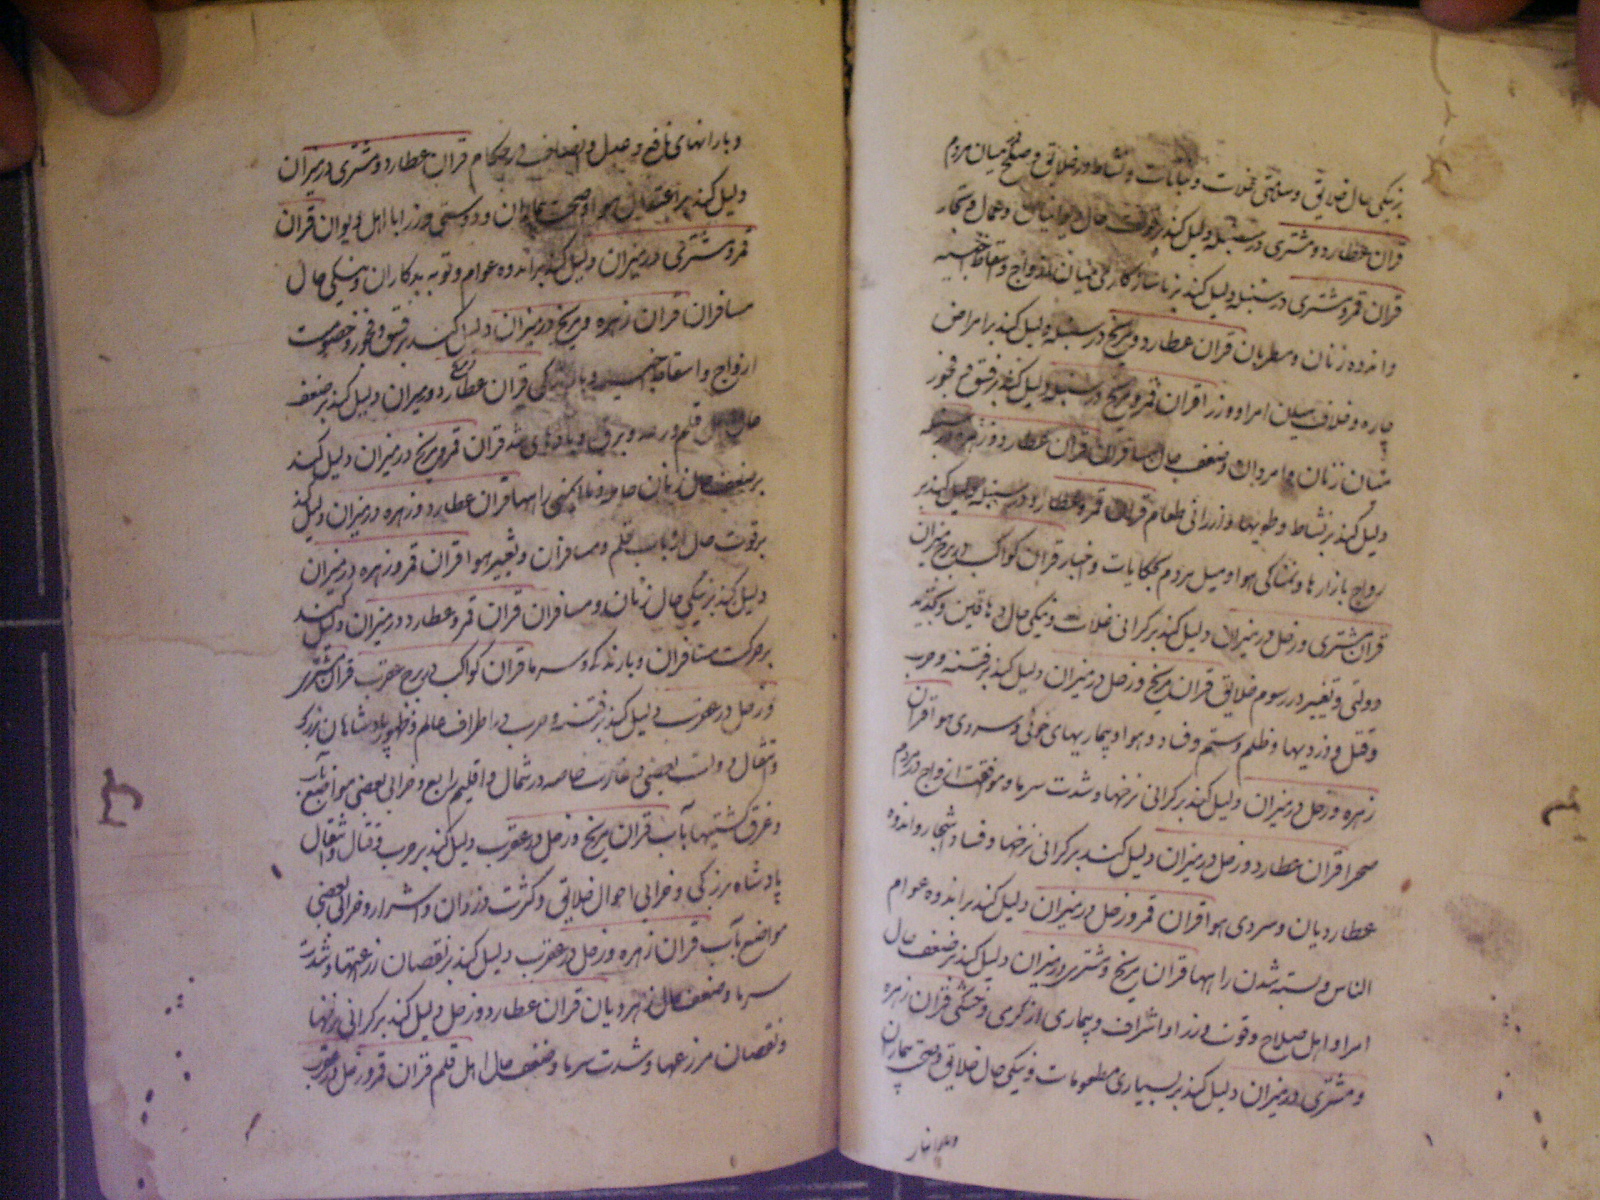 بر نیکی حال خلایق و سلامتی غلات و نباتات و نشاط در خلایق و صلح میان مردم
قران عطارد و مشتری در سنبله دلیل کند بر قوت حال دیوانیان و عمال و تجار
قران قمر و مشتری در سنبله دلیل کند بر ناسازگاری میان ازواج و اسقاط اجنه
و اندوه زنان و مطربان قران عطارد و مریخ در سنبله دلیل کند بر امراض
حاره و خلاف میان امرا و وزرا قران قمر و مریخ در سنبله دلیل کند بر فسق و فجور
میان زنان و امردان و ضعف حال مسافران قران عطارد و زهره در سنبله
دلیل کند بر نشاط و طویها و ارزانی طعام قران قمر و عطارد در سنبله دلیل کند بر
رواج بازارها و نمناکی هوا و میل مردم بحکایات و اخبار قران کواکب در برج میزان
قران مشتری و زحل در میزان دلیل کند بر گرانی غلات و نیکی حال دهاقین و
دولتی و تغییر در رسوم خلایق قران مریخ و زحل در میزان دلیل کند بر فتنه و حرب
و قتل و دزدیها و ظلم و ستم و فساد هوا و بیماریهای خونی و سردی هوا قران
زهره و زحل در میزان دلیل کند بر گرانی نرخها و شدت سرما و موافقت ازواج در مردم
صحرا قران عطارد و زحل در میزان دلیل کند بر گرانی نرخها و فساد اشجار و اندوه
عطاردیان و سردی هوا قران قمر و زحل در میزان دلیل کند بر اندوه عوام
الناس و بسته شدن راهها قران مریخ و مشتری در میزان دلیل کند بر ضعف حال
امرا و اهل صلاح و قوت وزرا و اشراف و بیماری از گرمی و خشکی قران زهره
و مشتری در میزان دلیل کند بر بسیاری مطعومات و نیکی حال خلایق و صحت بیماران
و بارانهای نافع و عدل و انصاف در حکام قران عطارد و مشتری در میزان
دلیل کند بر اعتدال هوا و صحت بیماران و دوستی وزرا با اهل دیوان قران
قمر و مشتری در میزان دلیل کند بر اندوه عوام و توبه بدکاران و نیکی حال
مسافران قران زهره و مریخ در میزان دلیل کند بر فسق و فجور و خصومت
ازواج و اسقاط جنین و بارندگی قران عطارد و مریخ در میزان دلیل کند بر ضعف
حال اهل قلم و رعد و برق و بادهای تند قران قمر و مریخ در میزان دلیل کند
بر ضعف حال زنان حامله و ناایمنی راهها قران عطارد و زهره در میزان دلیل کند
بر قوت حال ارباب قلم و مسافران و تغییر هوا قران قمر و زهره در میزان
دلیل کند بر نیکی حال زنان و مسافران قران قمر و عطارد در میزان دلیل کند
بر حرکت مسافران و بارندکی و سرما قران کواکب در برج عقرب قران مشتری
و زحل در عقرب دلیل کند بر فتنه و حرب در اطراف عالم و ظهور پادشاهان بزرگ
و انتقال دولت بعضی و غارت خاصه در شمال و اقلیم رابع و خرابی بعضی مواضع بآب
و غرق کشتیها بآب قران مریخ و زحل در عقرب دلیل کند بر حرب و قتال و انتقال
پادشاه بزرگی و خرابی احوال خلایق و کثرت دزدان و اشرار و خرابی بعضی
مواضع بآب قران زهره و زحل در عقرب دلیل کند بر نقصان زرعتها و شدت
سرما و ضعف حال زهرویان قران عطارد و زحل دلیل کند بر گرانی نرخها
و نقصان مزرعها و شدت سرما و ضعف حال اهل قلم قران قمر و زحل در عقرب